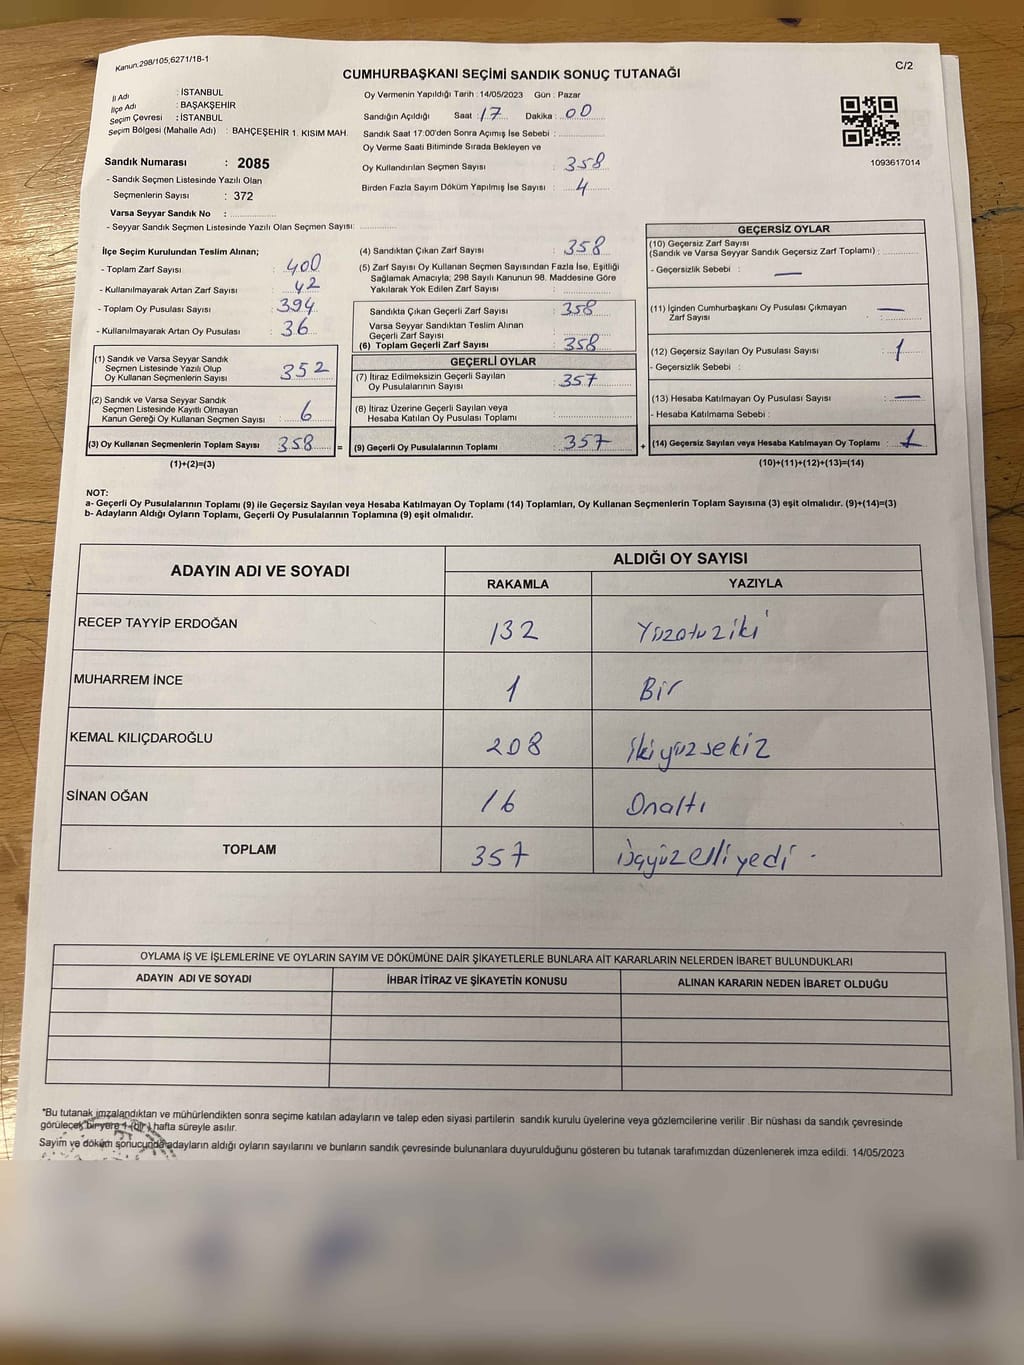 Kanun.298/105,6271/18-1
C/2
CUMHURBAŞKANI SEÇİMİ SANDIK SONUÇ TUTANAĞI
İl Adı : İSTANBUL
İlçe Adı : BAŞAKŞEHİR
Seçim Çevresi : İSTANBUL
Seçim Bölgesi (Mahalle Adı) : BAHÇEŞEHİR 1. KISIM MAH.
Sandık Numarası : 2085
- Sandık Seçmen Listesinde Yazılı Olan
Seçmenlerin Sayısı : 372
Varsa Seyyar Sandık No :
- Seyyar Sandık Seçmen Listesinde Yazılı Olan Seçmen Sayısı:
Oy Vermenin Yapıldığı Tarih : 14/05/2023 Gün : Pazar
Sandığın Açıldığı Saat : 17 Dakika : 00
Sandık Saat 17:00'den Sonra Açımış İse Sebebi :
Oy Verme Saati Bitiminde Sırada Bekleyen ve
Oy Kullandırılan Seçmen Sayısı : 358
Birden Fazla Sayım Döküm Yapılmış İse Sayısı : 4
1093617014
İlçe Seçim Kurulundan Teslim Alınan;
- Toplam Zarf Sayısı : 400
- Kullanılmayarak Artan Zarf Sayısı : 42
- Toplam Oy Pusulası Sayısı : 394
- Kullanılmayarak Artan Oy Pusulası : 36
(1) Sandık ve Varsa Seyyar Sandık
Seçmen Listesinde Yazılı Olup
Oy Kullanan Seçmenlerin Sayısı : 352
(2) Sandık ve Varsa Seyyar Sandık
Seçmen Listesinde Kayıtlı Olmayan
Kanun Gereği Oy Kullanan Seçmen Sayısı : 6
(3) Oy Kullanan Seçmenlerin Toplam Sayısı : 358 =
(1)+(2)=(3)
(4) Sandıktan Çıkan Zarf Sayısı : 358
(5) Zarf Sayısı Oy Kullanan Seçmen Sayısından Fazla İse, Eşitliği
Sağlamak Amacıyla; 298 Sayılı Kanunun 98. Maddesine Göre
Yakılarak Yok Edilen Zarf Sayısı :
Sandıkta Çıkan Geçerli Zarf Sayısı : 358
Varsa Seyyar Sandıktan Teslim Alınan
Geçerli Zarf Sayısı :
(6) Toplam Geçerli Zarf Sayısı : 358
GEÇERLİ OYLAR
(7) İtiraz Edilmeksizin Geçerli Sayılan
Oy Pusulalarının Sayısı : 357
(8) İtiraz Üzerine Geçerli Sayılan veya
Hesaba Katılan Oy Pusulası Toplamı :
(9) Geçerli Oy Pusulalarının Toplamı : 357 +
GEÇERSİZ OYLAR
(10) Geçersiz Zarf Sayısı
(Sandık ve Varsa Seyyar Sandık Geçersiz Zarf Toplamı) :
- Geçersizlik Sebebi : —
(11) İçinden Cumhurbaşkanı Oy Pusulası Çıkmayan
Zarf Sayısı : —
(12) Geçersiz Sayılan Oy Pusulası Sayısı : 1
- Geçersizlik Sebebi :
(13) Hesaba Katılmayan Oy Pusulası Sayısı : —
- Hesaba Katılmama Sebebi :
(14) Geçersiz Sayılan veya Hesaba Katılmayan Oy Toplamı : 1
(10)+(11)+(12)+(13)=(14)
NOT:
a- Geçerli Oy Pusulalarının Toplamı (9) ile Geçersiz Sayılan veya Hesaba Katılmayan Oy Toplamı (14) Toplamları, Oy Kullanan Seçmenlerin Toplam Sayısına (3) eşit olmalıdır. (9)+(14)=(3)
b- Adayların Aldığı Oyların Toplamı, Geçerli Oy Pusulalarının Toplamına (9) eşit olmalıdır.
ADAYIN ADI VE SOYADI
ALDIĞI OY SAYISI
RAKAMLA YAZIYLA
RECEP TAYYİP ERDOĞAN 132 Yüzotuziki
MUHARREM İNCE 1 Bir
KEMAL KILIÇDAROĞLU 208 ikiyüzsekiz
SİNAN OĞAN 16 Onaltı
TOPLAM 357 üçyüzelliyedi
OYLAMA İŞ VE İŞLEMLERİNE VE OYLARIN SAYIM VE DÖKÜMÜNE DAİR ŞİKAYETLERLE BUNLARA AİT KARARLARIN NELERDEN İBARET BULUNDUKLARI
ADAYIN ADI VE SOYADI İHBAR İTİRAZ VE ŞİKAYETİN KONUSU ALINAN KARARIN NEDEN İBARET OLDUĞU
*Bu tutanak imzalandıktan ve mühürlendikten sonra seçime katılan adayların ve talep eden siyasi partilerin sandık kurulu üyelerine veya gözlemcilerine verilir .Bir nüshası da sandık çevresinde
görülecek bir yere 1 (bir ) hafta süreyle asılır.
Sayım ve döküm sonucunda adayların aldığı oyların sayılarını ve bunların sandık çevresinde bulunanlara duyurulduğunu gösteren bu tutanak tarafımızdan düzenlenerek imza edildi. 14/05/2023